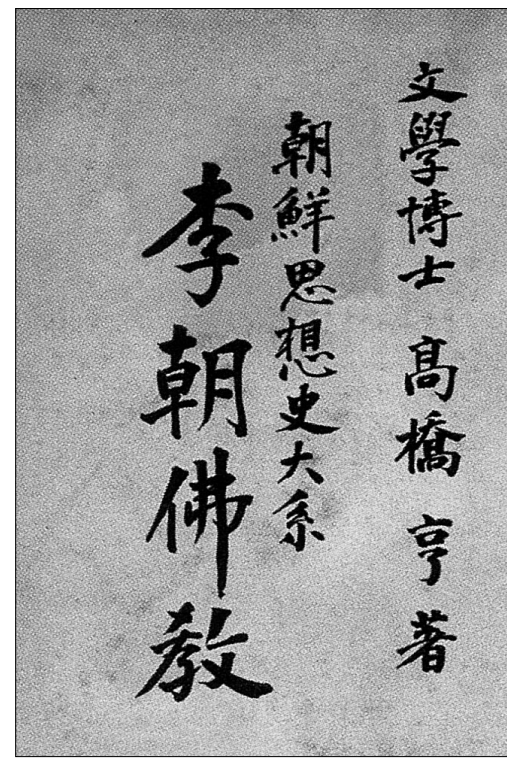 文學博士 髙橋 亨 著
朝鮮思想史大系
李朝佛教